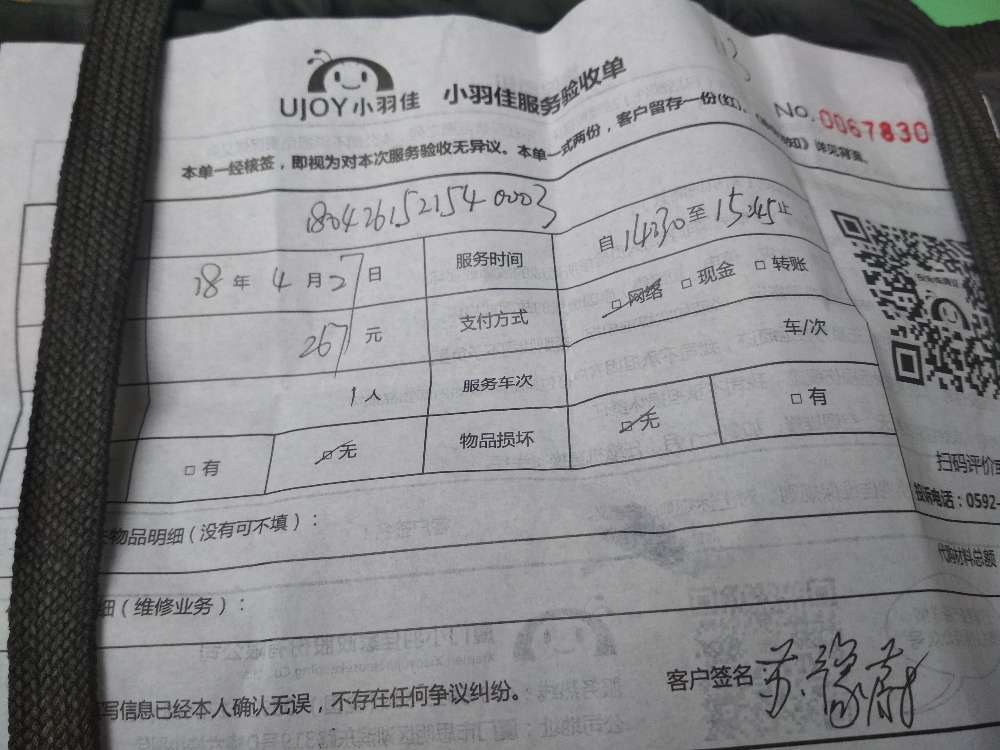 UJOY小羽佳 小羽佳服务验收单
No. 0067830
本单一经核签，即视为对本次服务验收无异议。本单一式两份，客户留存一份(红)、
知》详见背页。
180426152154 0003
18 年 4 月 27 日 服务时间 自 14:30 至 15:45 止
267 元 支付方式 □ 网络 □ 现金 □ 转账
1 人 服务车次 车/次
□ 有 □ 无 物品损坏 □ 无 □ 有
扫码评价
投诉电话：0592-
物品明细（没有可不填）：
代购材料总额
细（维修业务）：
写信息已经本人确认无误，不存在任何争议纠纷。
客户签名